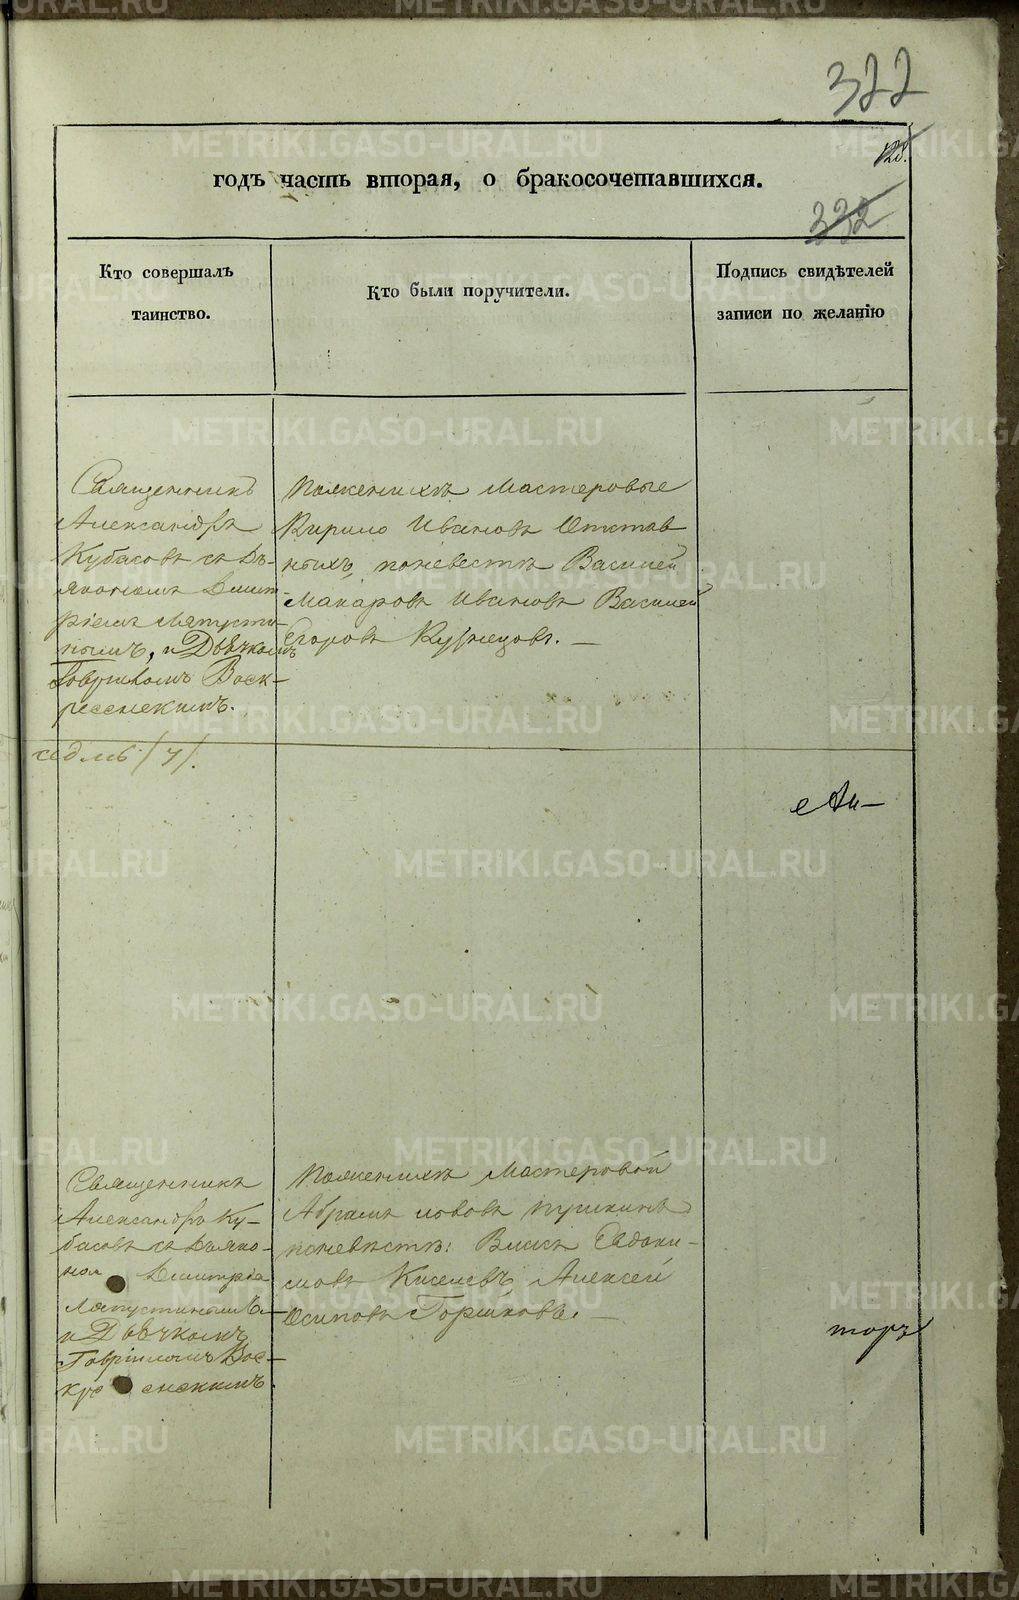 322
128.
годъ часть вторая, о бракосочетавшихся.
332
Кто совершалъ
таинство.
Кто были поручители.
Подпись свидѣтелей
записи по желанію
Священникъ
Александръ
Кубасовъ съ Дь-
якономъ Димит-
ріемъ Ляпусти-
нымъ, и Дьячкомъ
Гавріиломъ Воск-
ресенскимъ.
Поженихѣ Мастеровые
Кирило Ивановъ Отстав
ныхъ, поневестѣ Василей
Макаровъ Ивановъ Василей
Егоровъ Кузнецовъ. —
седмь /7/.
Ли—
Священникъ
Александръ Ку-
басовъ съ Дьяко-
ном Димитріем
Ляпустинымъ—
и Дьячкомъ
Гавріиломъ Вос-
кресенскимъ.
Поженихѣ Мастеровой
Абрамъ Пушкинъ
поневѣстѣ: Власъ Евдоки-
мовъ Киселевъ Алексей
Осиповъ Горшковъ. —
торъ
METRIKI.GASO-URAL.RU